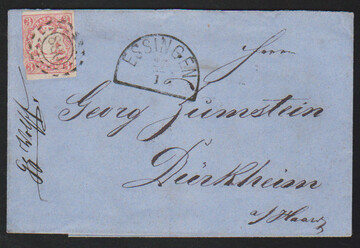 ESSINGEN
Herrn
Georg Zumstein
Dürkheim
a/Haardt